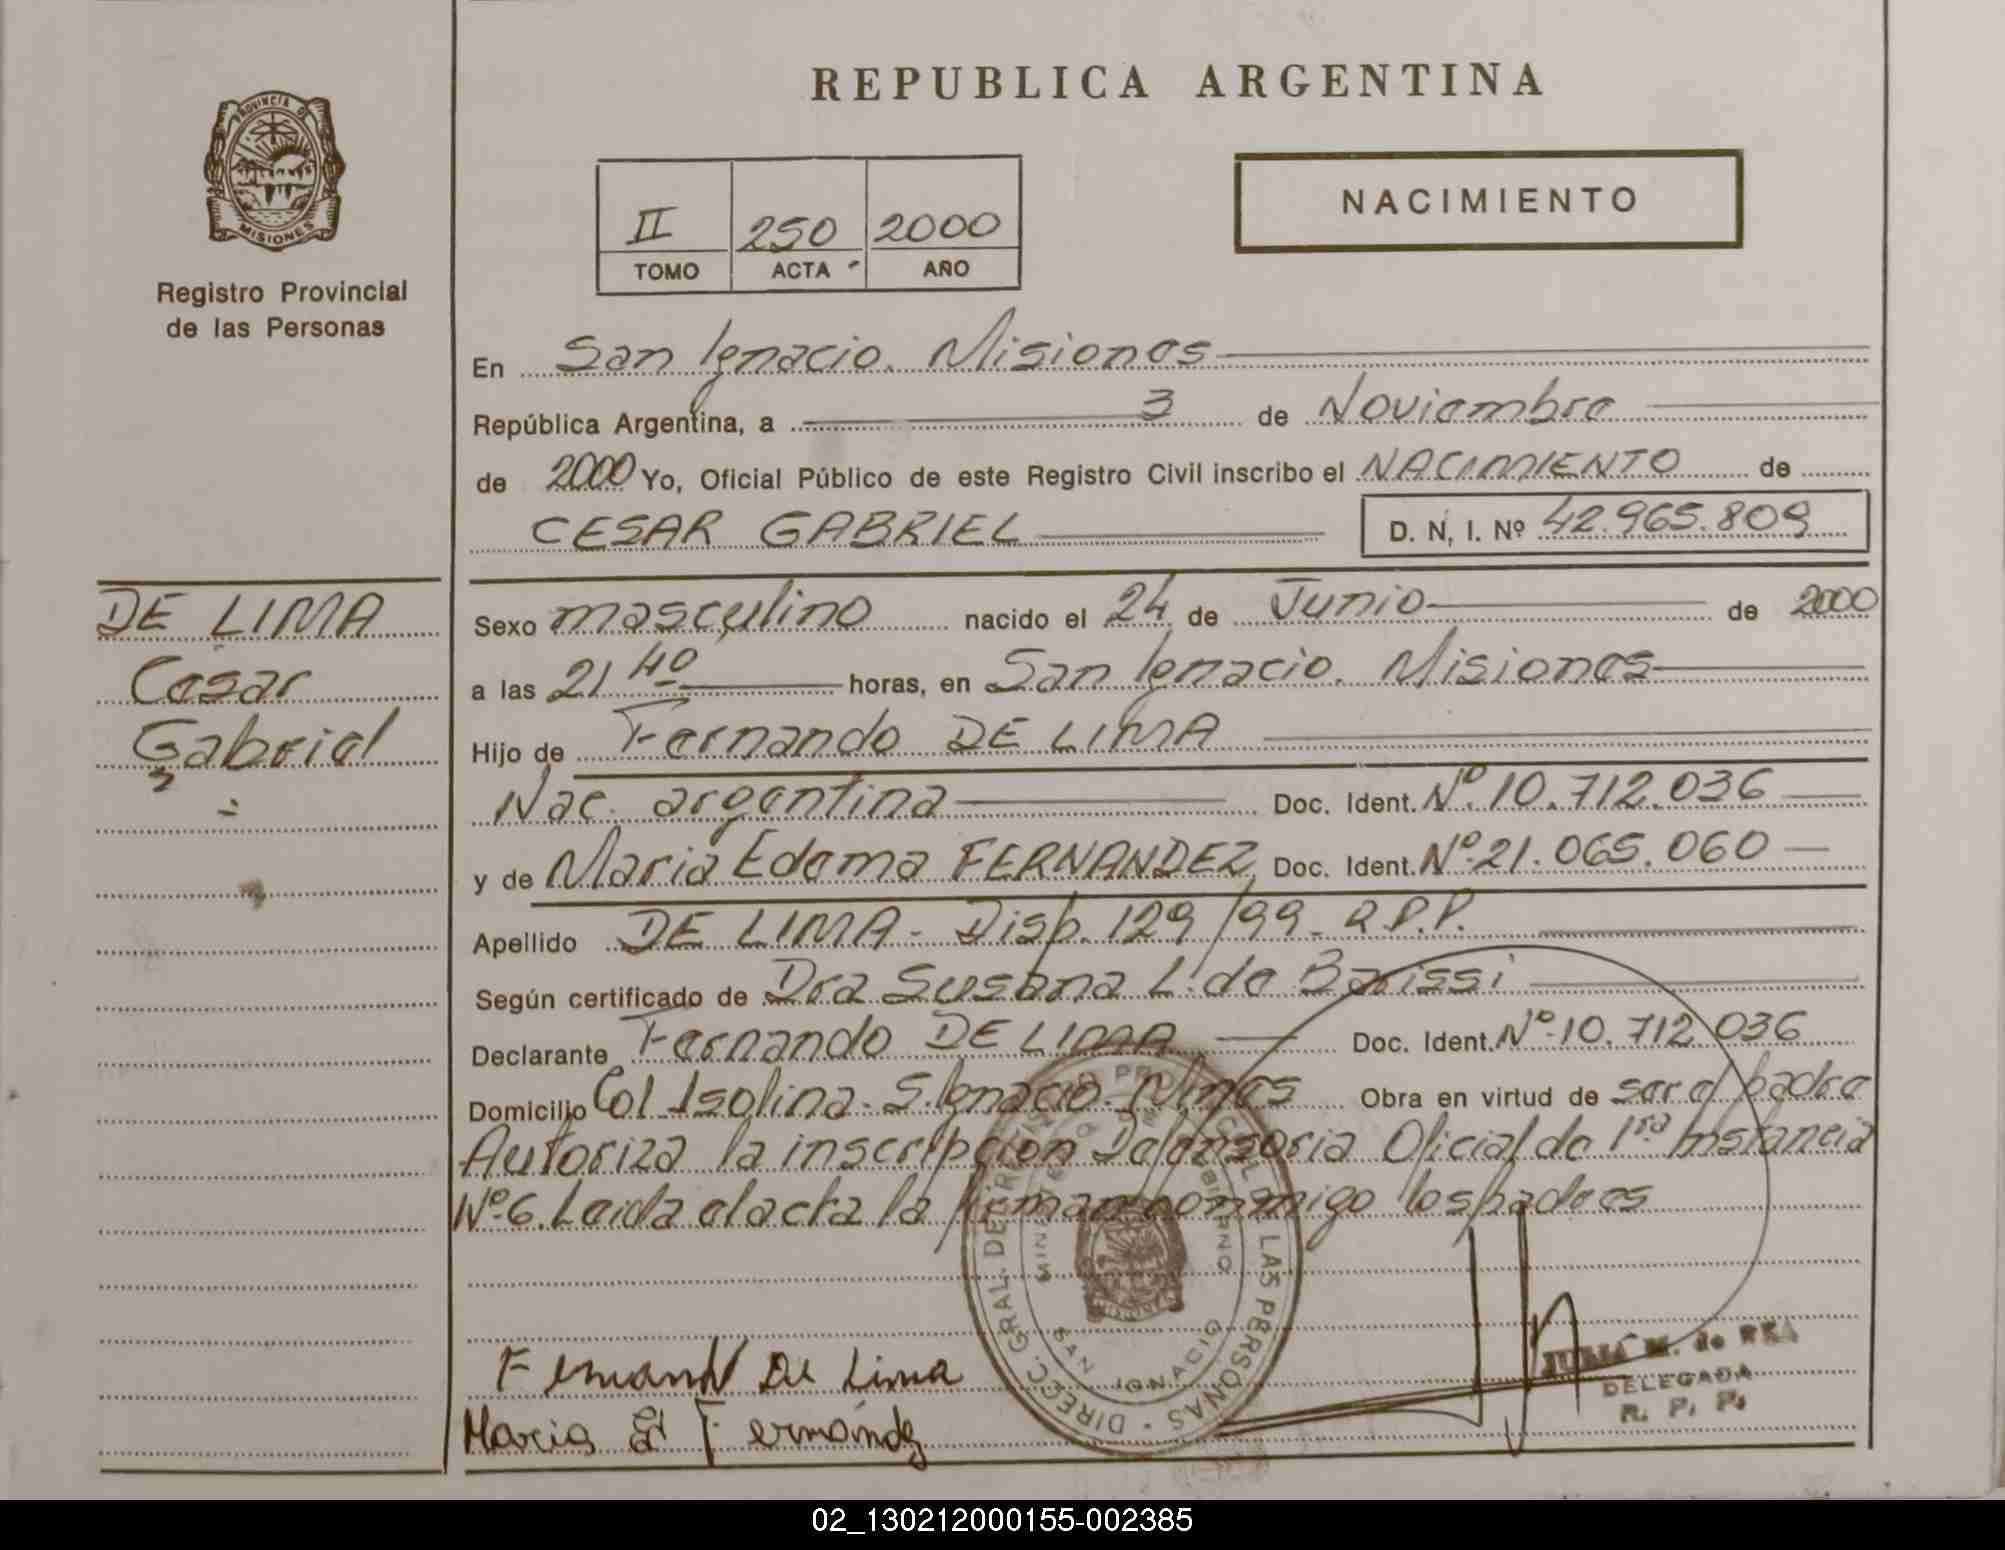 REPUBLICA ARGENTINA
PROVINCIA DE
MISIONES
Registro Provincial
de las Personas
II 250 2000
TOMO ACTA AÑO
NACIMIENTO
En San Ignacio. Misiones
República Argentina, a 3 de Noviembre
de 2000 Yo, Oficial Público de este Registro Civil inscribo el NACIMIENTO de
CESAR GABRIEL D. N, I. Nº 42.965.809
DE LIMA
Cesar
Gabriel
Sexo masculino nacido el 24 de Junio de 2000
a las 21 40 horas, en San Ignacio. Misiones
Hijo de Fernando DE LIMA
Nac. argentina Doc. Ident. Nº 10.712.036
y de Maria Edema FERNANDEZ Doc. Ident. Nº 21.065.060
Apellido DE LIMA - Disp. 129/99 - R.P.P.
Según certificado de Dra Susana L. de Barissi
Declarante Fernando DE LIMA Doc. Ident. Nº 10.712.036
Domicilio Col Isolina - S. Ignacio - Mnes Obra en virtud de ser el padre
Autoriza la inscripcion Defensoria Oficial de 1ra Instancia
Nº 6. Leida el acta la firman conmigo los padres
Fernando De Lima
Maria E Fernández
DIREC. GRAL. DE LAS PERSONAS
SAN IGNACIO
JULIA M. de REA
DELEGADA
R. P. P.
02_130212000155-002385